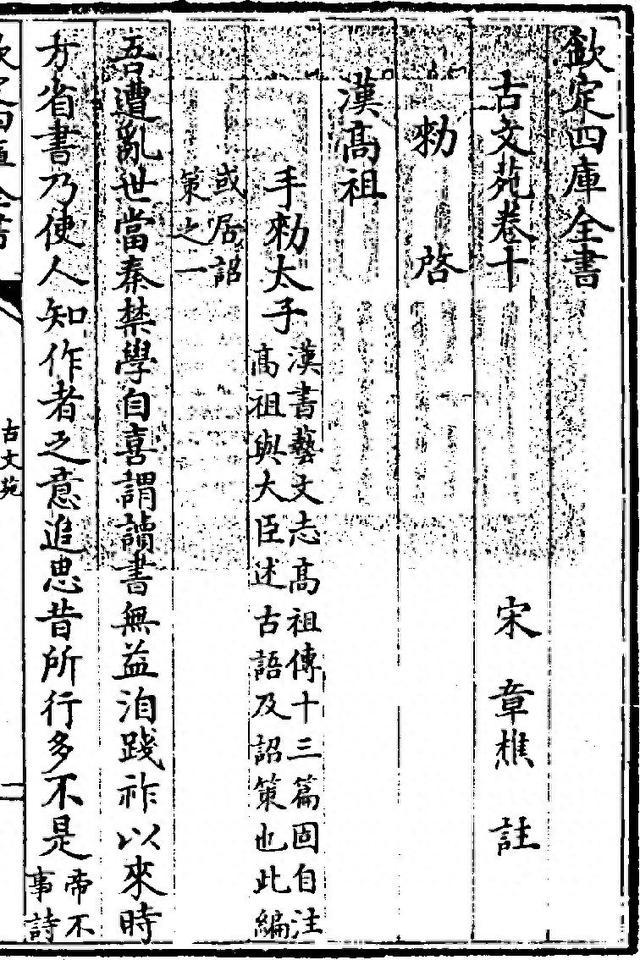 欽定四庫全書
古文苑卷十
宋 章樵 註
勑 啓
漢高祖
手勑太子
漢書藝文志高祖傳十三篇固自注
高祖與大臣述古語及詔策也此編
或居詔
策之一
吾遭亂世當秦禁學自喜謂讀書無益洎踐祚以來時
方省書乃使人知作者之意追思昔所行多不是
帝不
事詩
古文苑